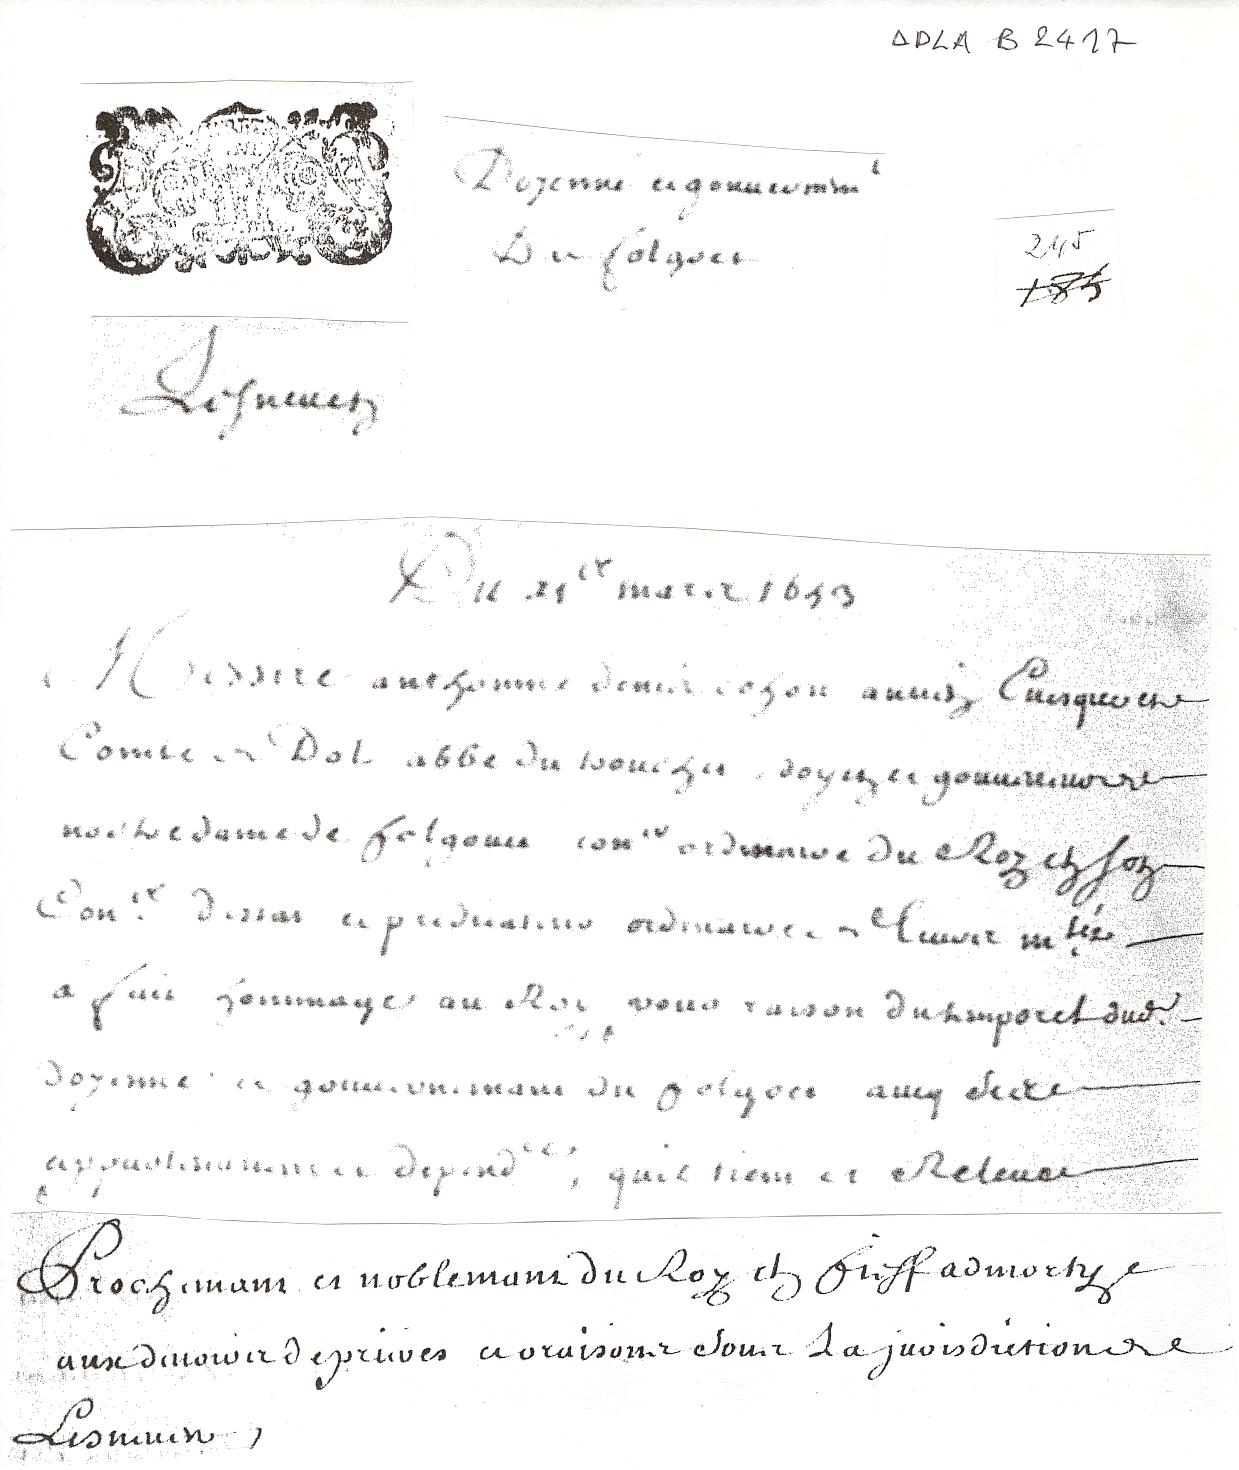 ADLA B 2417
Doyenne et gouuernem^t
Du folgoet
245
185
Lesneuen
Du 21^er mars 1653
Messire anthoinne denis cohon ancien Euesque et
Comte de Dol abbe du tronchet, doyen et gouuerneur de
nostre dame de folgouet con^er ordinaire du Roy en son
Con^er destat et predicateur ordinaire de leurs m^tez
a fait hommage au Roy pour raison du temporel dud.
doyenne et gouuernemant du folgoet aueq ses
appartenances et depend^ces, quil tient et Releue
Prochemant et noblemant du Roy en fieff admorty
aux deuoirs de prieres et oraisons soubz La jurisdiction de
Lesneuen,